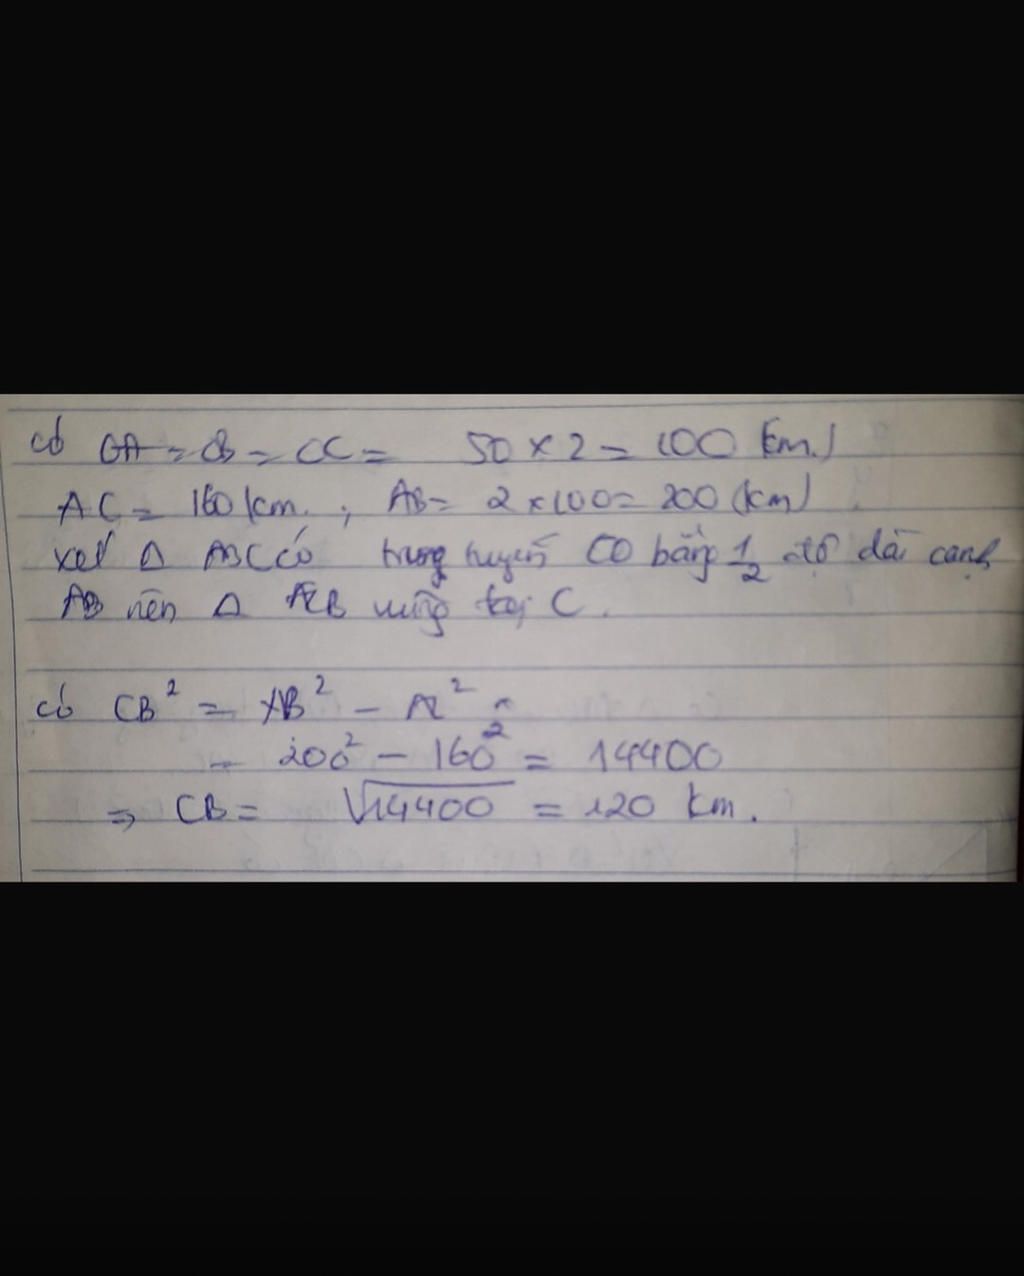 có OA = OB = OC = 50 x 2 = 100 (km)
AC = 160 km ; AB = 2 x 100 = 200 (km)
xét Δ ABC có trung tuyến CO bằng 1/2 độ dài cạnh
AB nên Δ ACB vuông tại C.
có CB² = AB² - AC²
= 200² - 160² = 14400
⇒ CB = √14400 = 120 km.